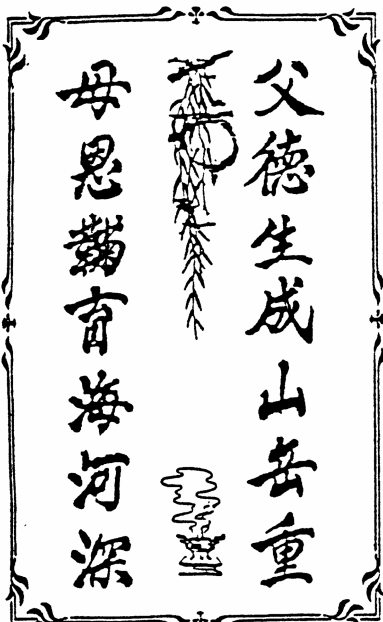 父德生成山岳重
母恩鞠育海河深